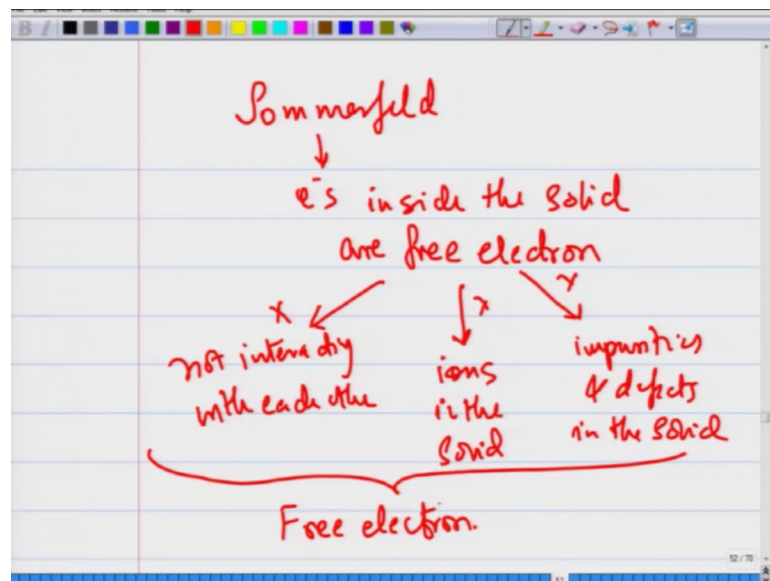 Sommerfeld
e⁻s inside the solid
are free electron
x x x
not interacting
with each othe
ions
in the
solid
impurities
& defects
in the solid
Free electron.
52/70